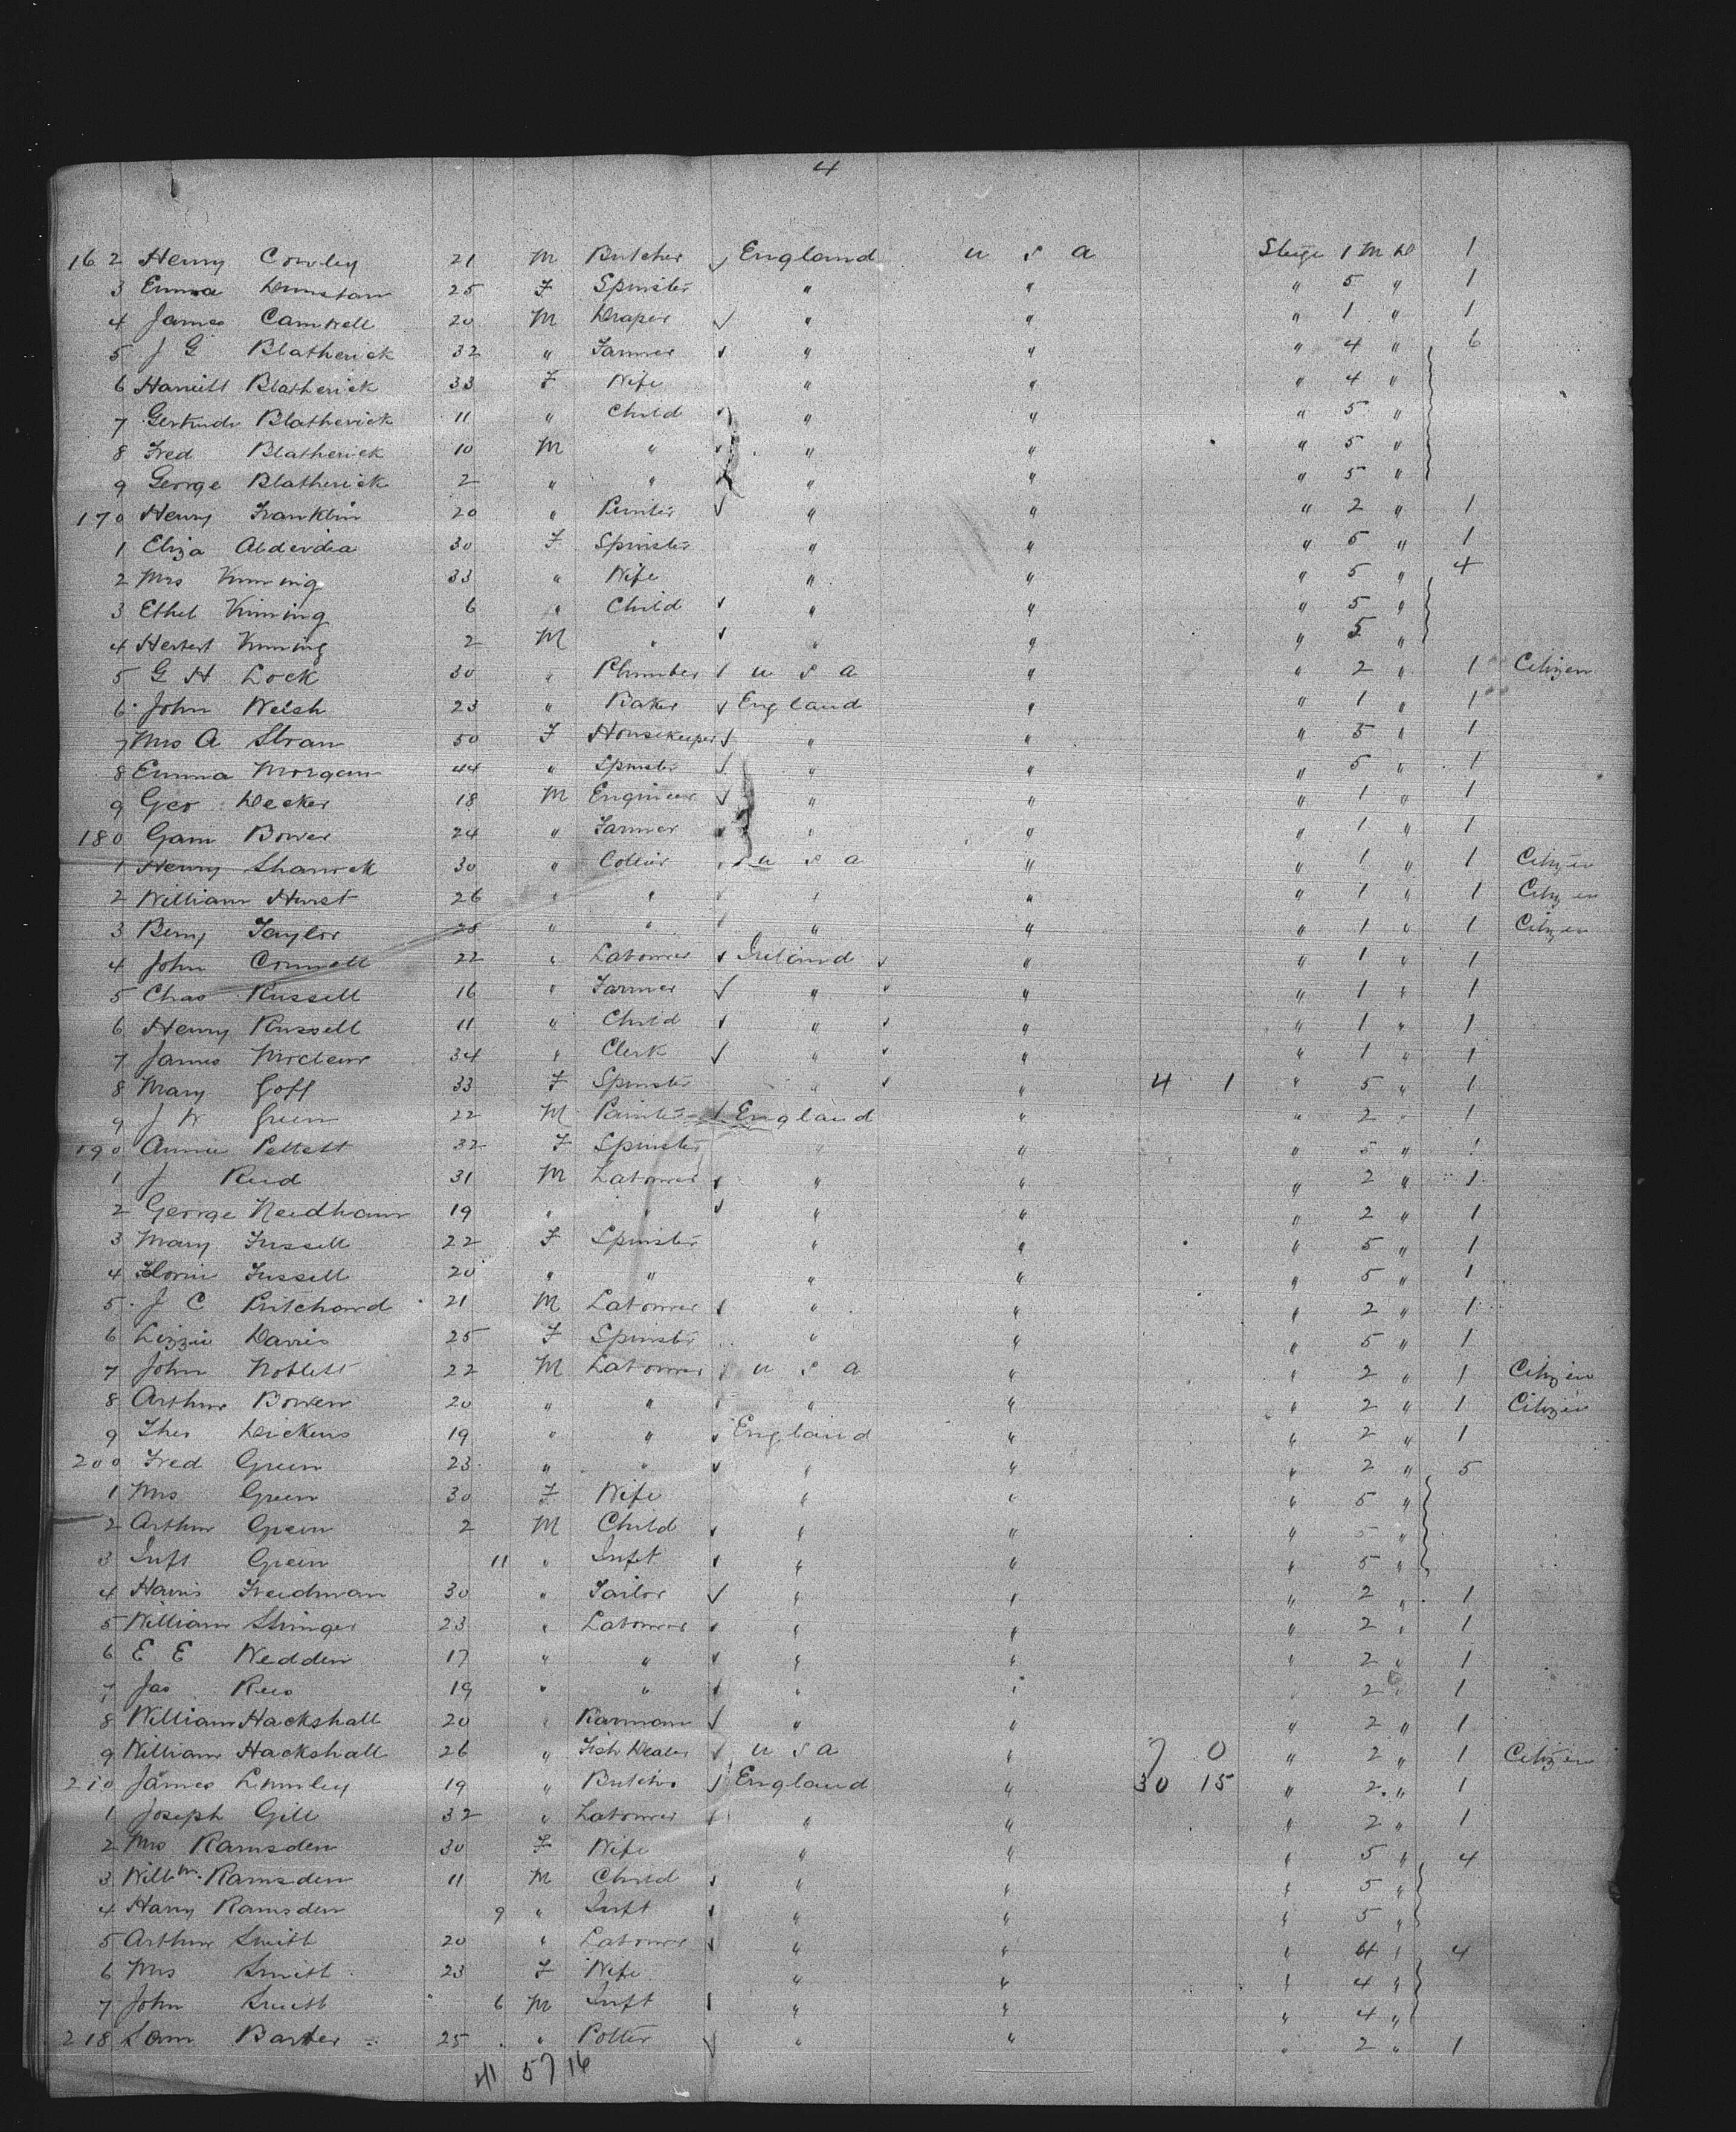 4
162 Henry Cowley 21 M Butcher England U S A Stege 1 M D 1
3 Emma Dunstan 25 F Spinster " " " 5 " 1
4 James Camwell 20 M Draper " " " 1 " 1
5 J G Blatherick 32 " Farmer " " " 4 " 6
6 Harriett Blatherick 33 F Wife " " " 4 "
7 Gertrude Blatherick 11 " Child " " " 5 "
8 Fred Blatherick 10 M " " " " 5 "
9 George Blatherick 2 " " " " " 5 "
170 Henry Franklin 20 " Printer " " " 2 " 1
1 Eliza 30 F Spinster " " " 5 " 1
2 Mrs 33 " Wife " " " 5 " 4
3 Ethel 6 " Child " " " 5 "
4 Herbert 2 M " " " " 5 "
5 G H Lock 30 " Plumber U S A " " 2 " 1 Citizen
6 John Welsh 23 " Baker England " " 1 " 1
7 Mrs A Stran 50 F Housekeeper " " " 5 " 1
8 Emma Morgan 44 " Spinster " " " 5 " 1
9 Geo Decker 18 M Engineer " " " 1 " 1
180 Gam Bower 24 " Farmer " " " 1 " 1
1 Henry Sharrock 30 " Collier U S A " " 1 " 1 Citizen
2 William Hurst 26 " " " " " 1 " 1 Citizen
3 Benj Taylor " " " " " 1 " 1 Citizen
4 John Connell 22 " Labourer Ireland " " 1 " 1
5 Chas Russell 16 " Farmer " " " 1 " 1
6 Henry Russell 11 " Child " " " 1 " 1
7 James 34 " Clerk " " " 1 " 1
8 Mary Goff 33 F Spinster " " 4 1 " 5 " 1
9 J W Green 22 M Painter England " " 2 " 1
190 Annie Pellett 32 F Spinster " " " 5 " 1
1 J Reid 31 M Labourer " " " 2 " 1
2 George Needham 19 " " " " " 2 " 1
3 Mary Fussell 22 F Spinster " " " 5 " 1
4 Florrie Fussell 20 " " " " " 5 " 1
5 J C Pritchard 21 M Labourer " " " 2 " 1
6 Lizzie Davis 25 F Spinster " " " 5 " 1
7 John Noblett 22 M Labourer U S A " " 2 " 1 Citizen
8 Arthur Bowen 20 " " " " " 2 " 1 Citizen
9 Thos Dickens 19 " " England " " 2 " 1
200 Fred Green 23 " " " " " 2 " 5
1 Mrs Green 30 F Wife " " " 5 "
2 Arthur Green 2 M Child " " " 5 "
3 Inft Green 11 " Inft " " " 5 "
4 Harris Freedman 30 " Tailor " " " 2 " 1
5 William Stringer 23 " Labourer " " " 2 " 1
6 E E Wedden 17 " " " " " 2 " 1
7 Jas Rees 19 " " " " 2 " 1
8 William Hackshall 20 " Carman " " " 2 " 1
9 William Hackshall 26 " Fish Dealer U S A " 7 0 " 2 " 1 Citizen
210 James Lumley 19 " Butcher England " 30 15 " 2 " 1
1 Joseph Gill 32 " Labourer " " " 2 " 1
2 Mrs Ramsden 30 F Wife " " " 5 " 4
3 Willm Ramsden 11 M Child " " " 5 "
4 Harry Ramsden 9 " Inft " " " 5 "
5 Arthur Smith 20 " Labourer " " " 4 " 4
6 Mrs Smith 23 F Wife " " " 4 "
7 John Smith 6 M Inft " " " 4 "
218 Sam Baxter 25 " Potter " " " 2 " 1
41 57 16